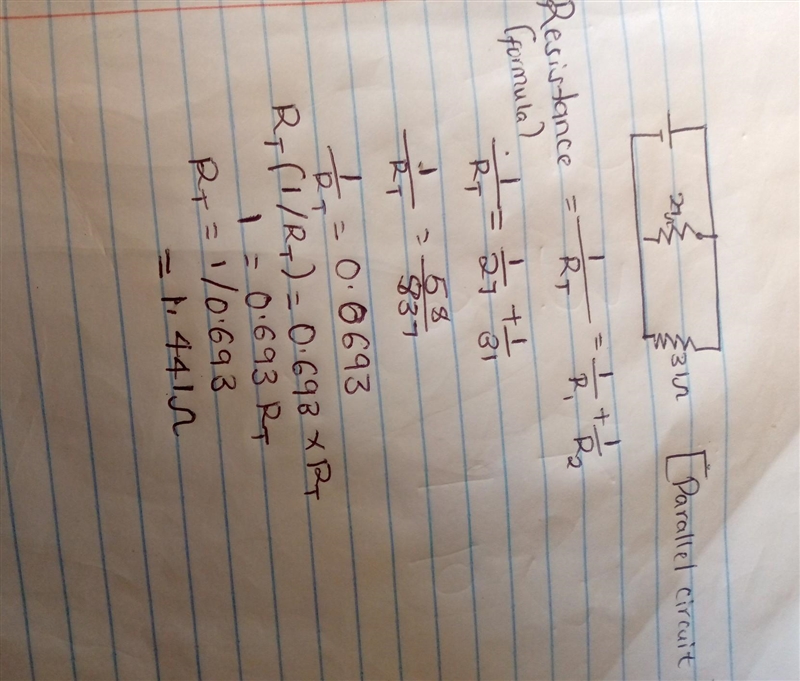 [Parallel circuit
27Ω 31Ω
Resistance = 1/RT = 1/R1 + 1/R2
(formula)
1/RT = 1/27 + 1/31
1/RT = 58/837
1/RT = 0.0693
RT (1/RT) = 0.693 x RT
1 = 0.693 RT
RT = 1/0.693
= 1.441Ω